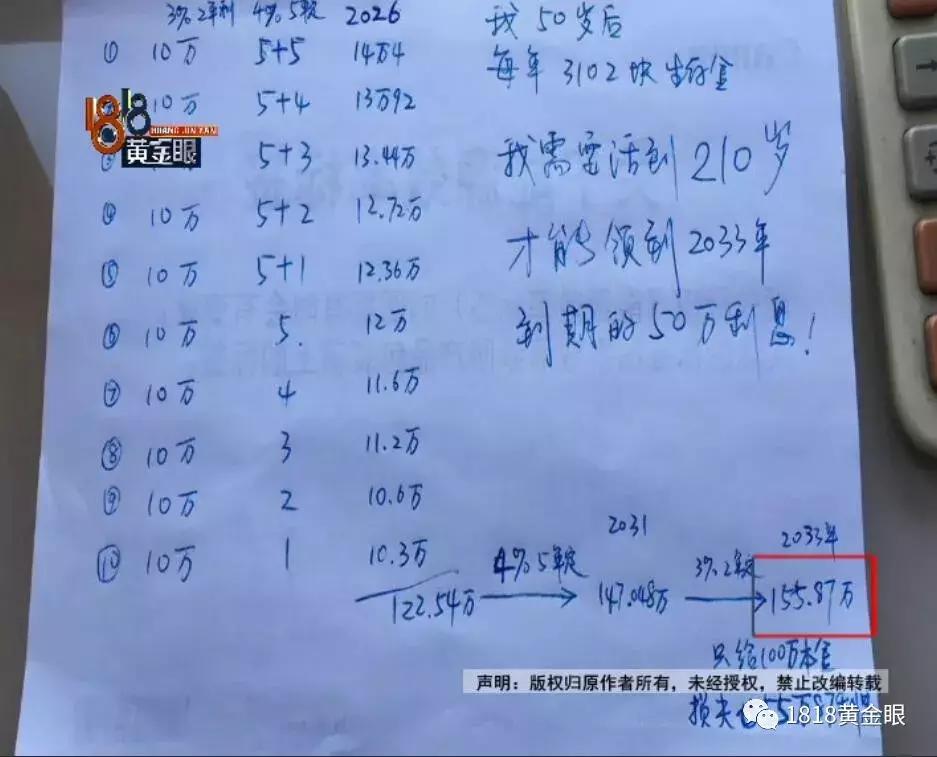 3% 2年利 4% 5年定 2026
① 10万 5+5 14万4
10万 5+4 13万92
5+3 13.44万
④ 10万 5+2 12.72万
⑤ 10万 5+1 12.36万
⑥ 10万 5. 12万
⑦ 10万 4 11.6万
⑧ 10万 3 11.2万
⑨ 10万 2 10.6万
⑩ 10万 1 10.3万
122.54万 4% 5年定 147.048万 3% 2年定 155.87万
2031
2033年
我50岁后
每年3102块生存金
我需要活到210岁
才能领到2033年
到期的50万利息!
只给100万本金
损失
1818
HUANG JIN YAN
黄金眼
声明:版权归原作者所有,未经授权,禁止改编转载
1818黄金眼